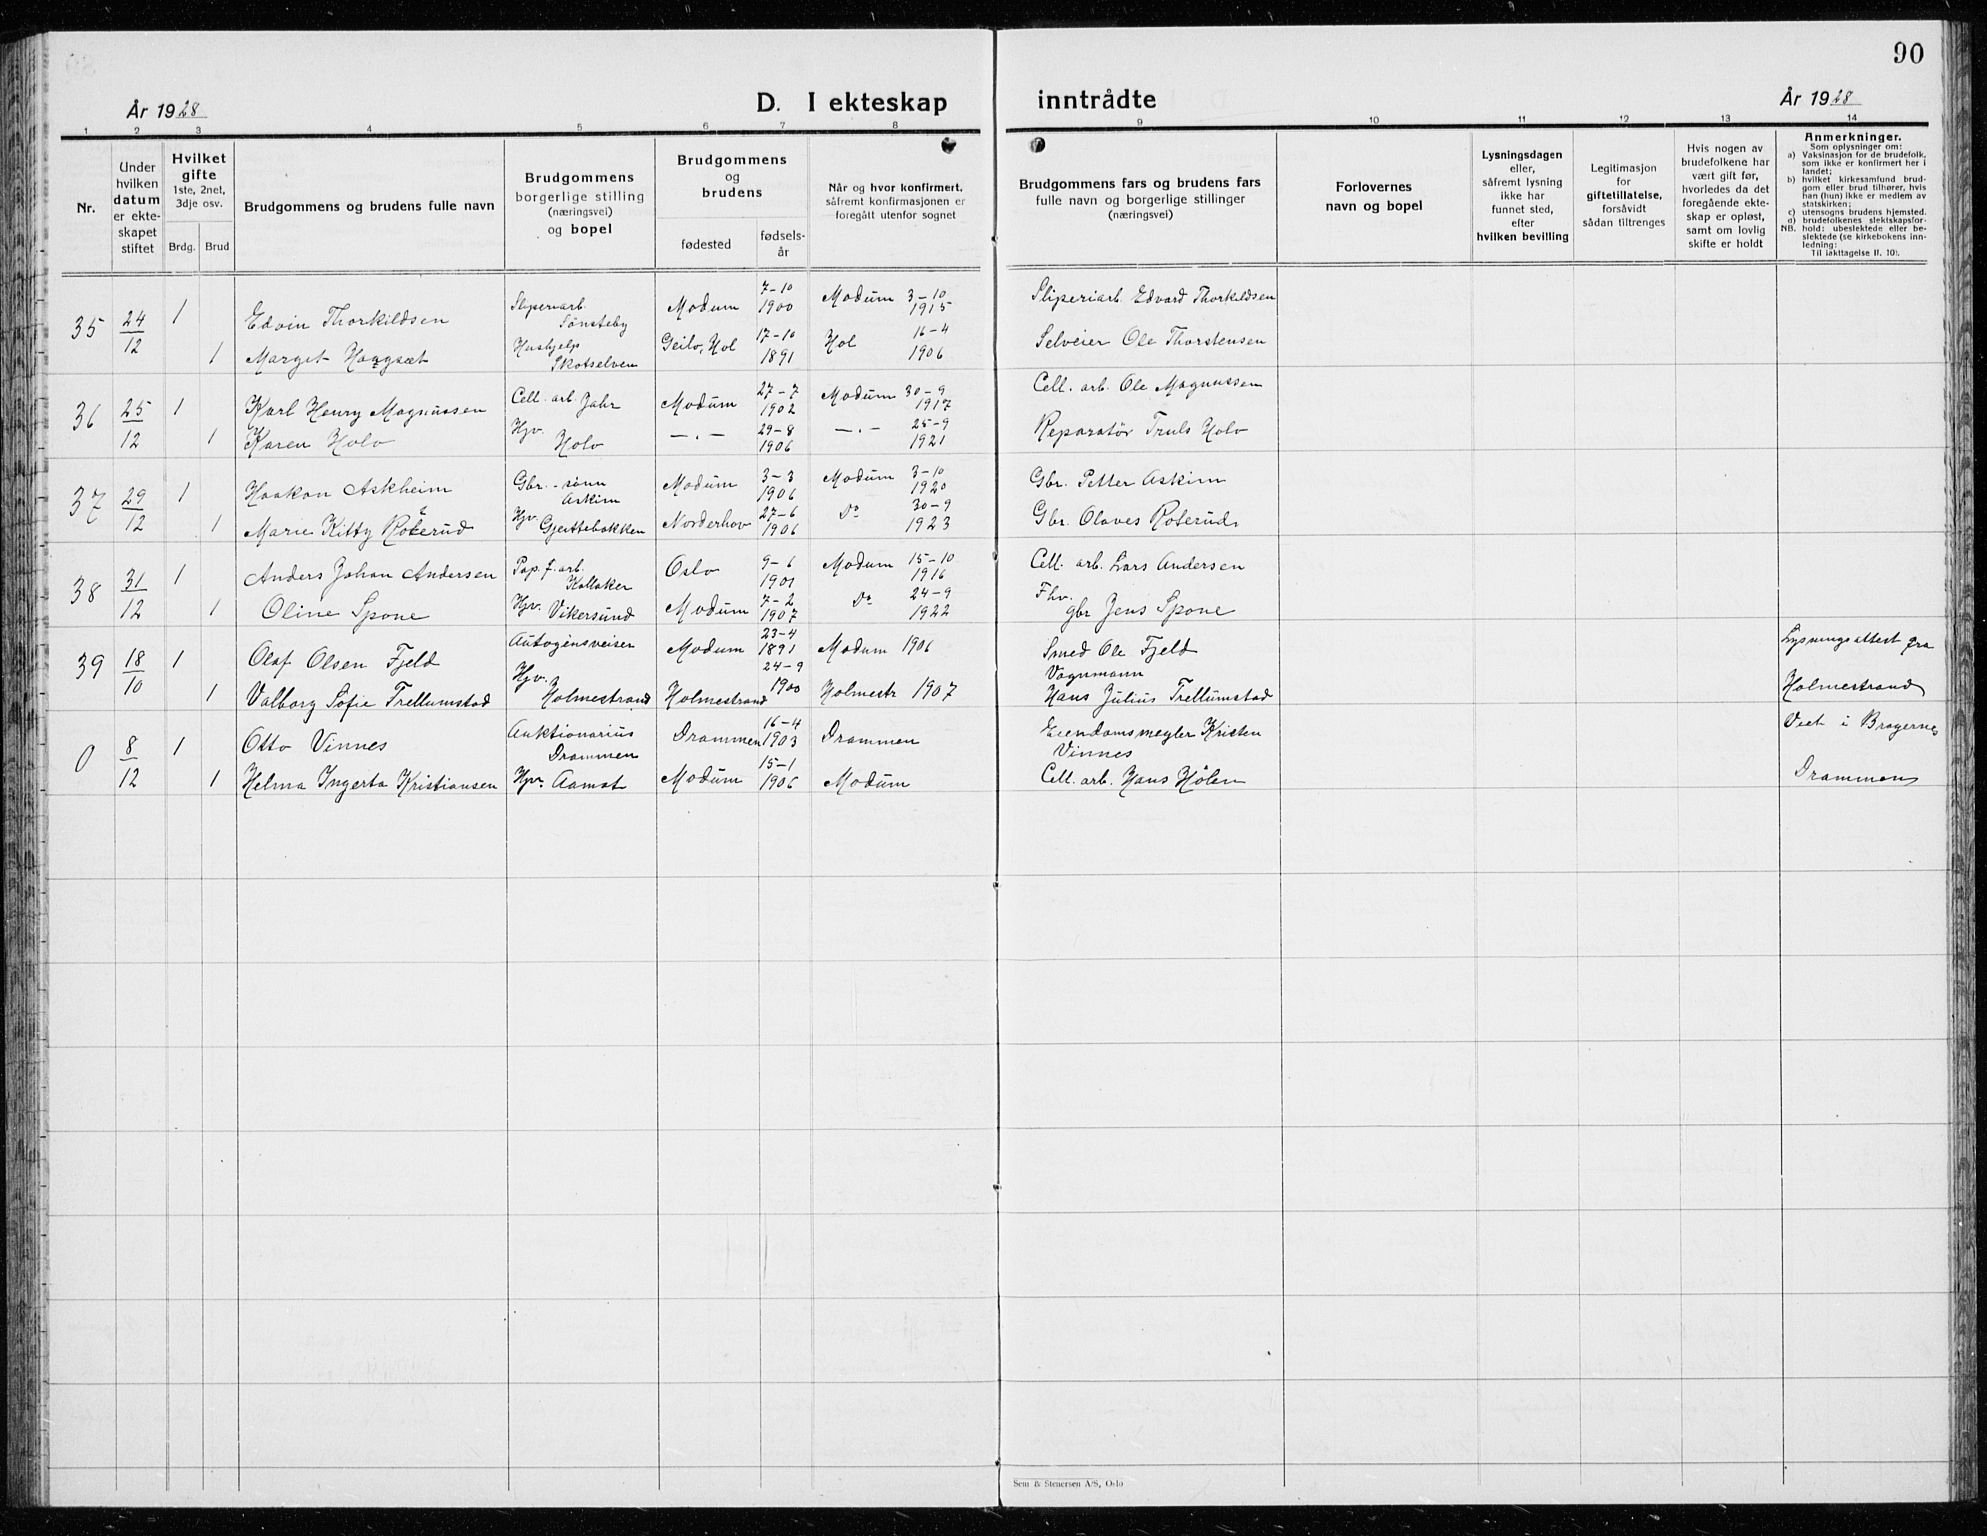 90
År 1928
D. I ekteskap
inntrådte
År 1928
1 2 3 4 5 6 7 8 9 10 11 12 13 14
Nr.
Under
hvilken
datum
er ekte-
skapet
stiftet
Hvilket
gifte
1ste, 2net,
3dje osv.
Brdg. Brud
Brudgommens og brudens fulle navn
Brudgommens
borgerlige stilling
(næringsvei)
og bopel
Brudgommens
og
brudens
fødested
fødsels-
år
Når og hvor konfirmert,
såfremt konfirmasjonen er
foregått utenfor sognet
Brudgommens fars og brudens fars
fulle navn og borgerlige stillinger
(næringsvei)
Forlovernes
navn og bopel
Lysningsdagen
eller,
såfremt lysning
ikke har
funnet sted,
efter
hvilken bevilling
Legitimasjon
for
giftetillatelse,
forsåvidt
sådan tiltrenges
Hvis nogen av
brudefolkene har
vært gift før,
hvorledes da det
foregående ekte-
skap er opløst,
samt om lovlig
skifte er holdt
Anmerkninger.
Som oplysninger om:
a) Vaksinasjon for de brudefolk,
som ikke er konfirmert her i
landet;
b) hvilket kirkesamfund brud-
gom eller brud tilhører, hvis
han (hun) ikke er medlem av
statskirken;
c) utensogns brudens hjemsted.
d) brudefolkenes slektskapsfor-
NB. hold: ubeslektede eller be-
slektede (se kirkebokens inn-
ledning:
Til iakttagelse II. 10).
35 24/12 1 Edvin Thorkildsen Sliperiarb. Sønsteby Modum 7-10 1900 Modum 3-10 1915 Sliperiarb. Edvard Thorkildsen
1 Margit Haggsæt Hushjelp Skotselven Geilo, Hol 17-10 1891 Hol 16-4 1906 Selveier Ole Thorstensen
36 25/12 1 Karl Henry Magnussen Cell. arb. Jahr Modum 27-7 1902 Modum 30-9 1917 Cell. arb. Ole Magnussen
1 Karen Holo Hjv. Holo —.— 29-8 1906 —.— 25-9 1921 Reparatør Truls Holo
37 29/12 1 Haakon Askheim Gbr.-sønn Askim Modum 3-3 1906 Modum 3-10 1920 Gbr. Petter Askim
1 Marie Kitty Røterud Hjv. Gjettebakken Norderhov 27-6 1906 Do 30-9 1923 Gbr. Olaves Roterud
38 31/12 1 Anders Johan Andersen Pap. f. arb. Kolloker Oslo 9-6 1901 Modum 15-10 1916 Cell. arb. Lars Andersen
1 Oline Spone Hjv. Vikersund Modum 7-2 1907 Do 24-9 1922 Fhv. gbr Jens Spone
39 18/10 1 Olaf Olsen Fjeld Autogensveiser Modum 23-4 1891 Modum 1906 Smed Ole Fjeld Lysningsattest fra
1 Valborg Sofie Trellumstad Hjv. Holmestrand Holmestrand 24-9 1900 Holmestr 1907 Vognmann Hans Julius Trellumstad Holmestrand
0 8/12 1 Otto Vinnes Auktionarius Drammen Drammen 16-4 1903 Drammen Eiendomsmegler Kristen Vinnes Viet i Bragernes
1 Helma Ingerta Kristiansen Hjv. Aamot Modum 15-1 1906 Modum Cell. arb. Hans Hølen Drammen
Sem & Stenersen A/S, Oslo